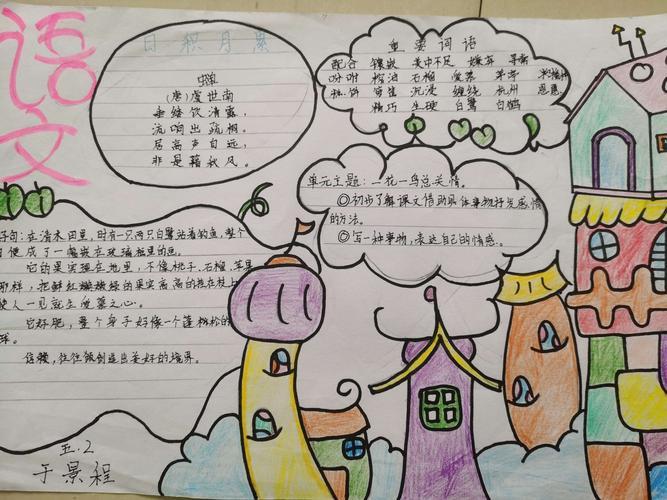 语文
日积月累
蝉
(唐)虞世南
垂緌饮清露,
流响出疏桐。
居高声自远,
非是藉秋风。
重要词语
配合 镶嵌 美中不足 嫌弃 寻常
吩咐 榨油 石榴 爱慕 茅亭
糕饼 浸 沉浸 缠绕 杭州 恩惠
精巧 生硬 白鹭 白鹤
单元主题:一花一鸟总关情。
◎初步了解课文借助具体事物抒发感情
的方法。
◎写一种事物,表达自己的情感。
好句:在清水田里,时有一只两只白鹭站着钓鱼,整个
便成了一幅嵌在玻璃框里的画。
它的果实埋在地里,不像桃子、石榴、苹果
那样,把鲜红嫩绿的果实高高的挂在枝上
使人一见就生爱慕之心。
它好肥,整个身子好像一个蓬松的
球。
信赖,往往能创造出美好的境界。
五.2
于景程